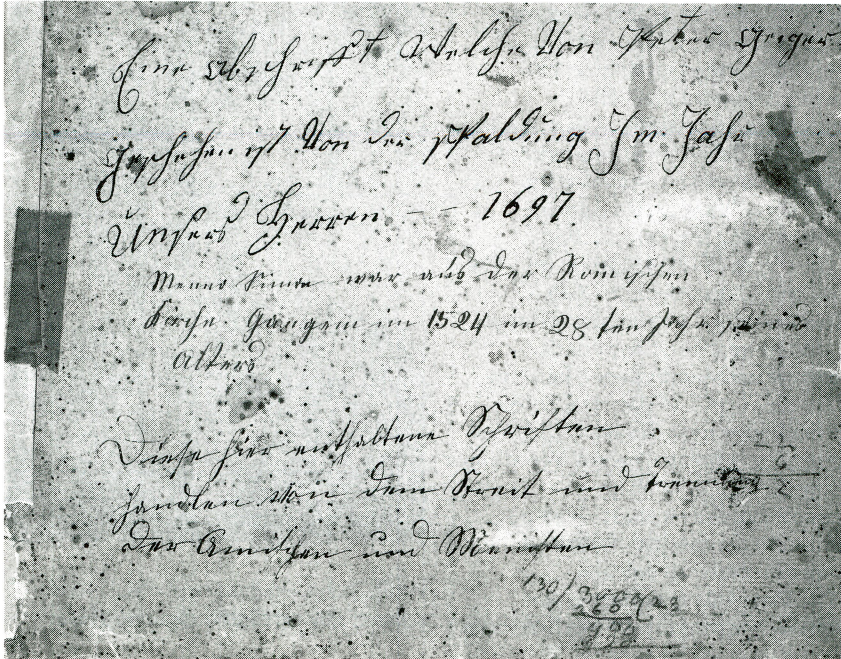 Eine abschrifft Welche Von Peter Geiger
Geschehen ist Von der spaldung Im Jahr
Unsers Herren — — 1697
Menno Simon war aus der Romischen
Kirche Gangem im 1524 im 28 ten Jahr seines
Alters
Diese hier enthaltene Schriften
handlen von dem Streit und
Der Amischen und Menisten
130) 3000 (23
260